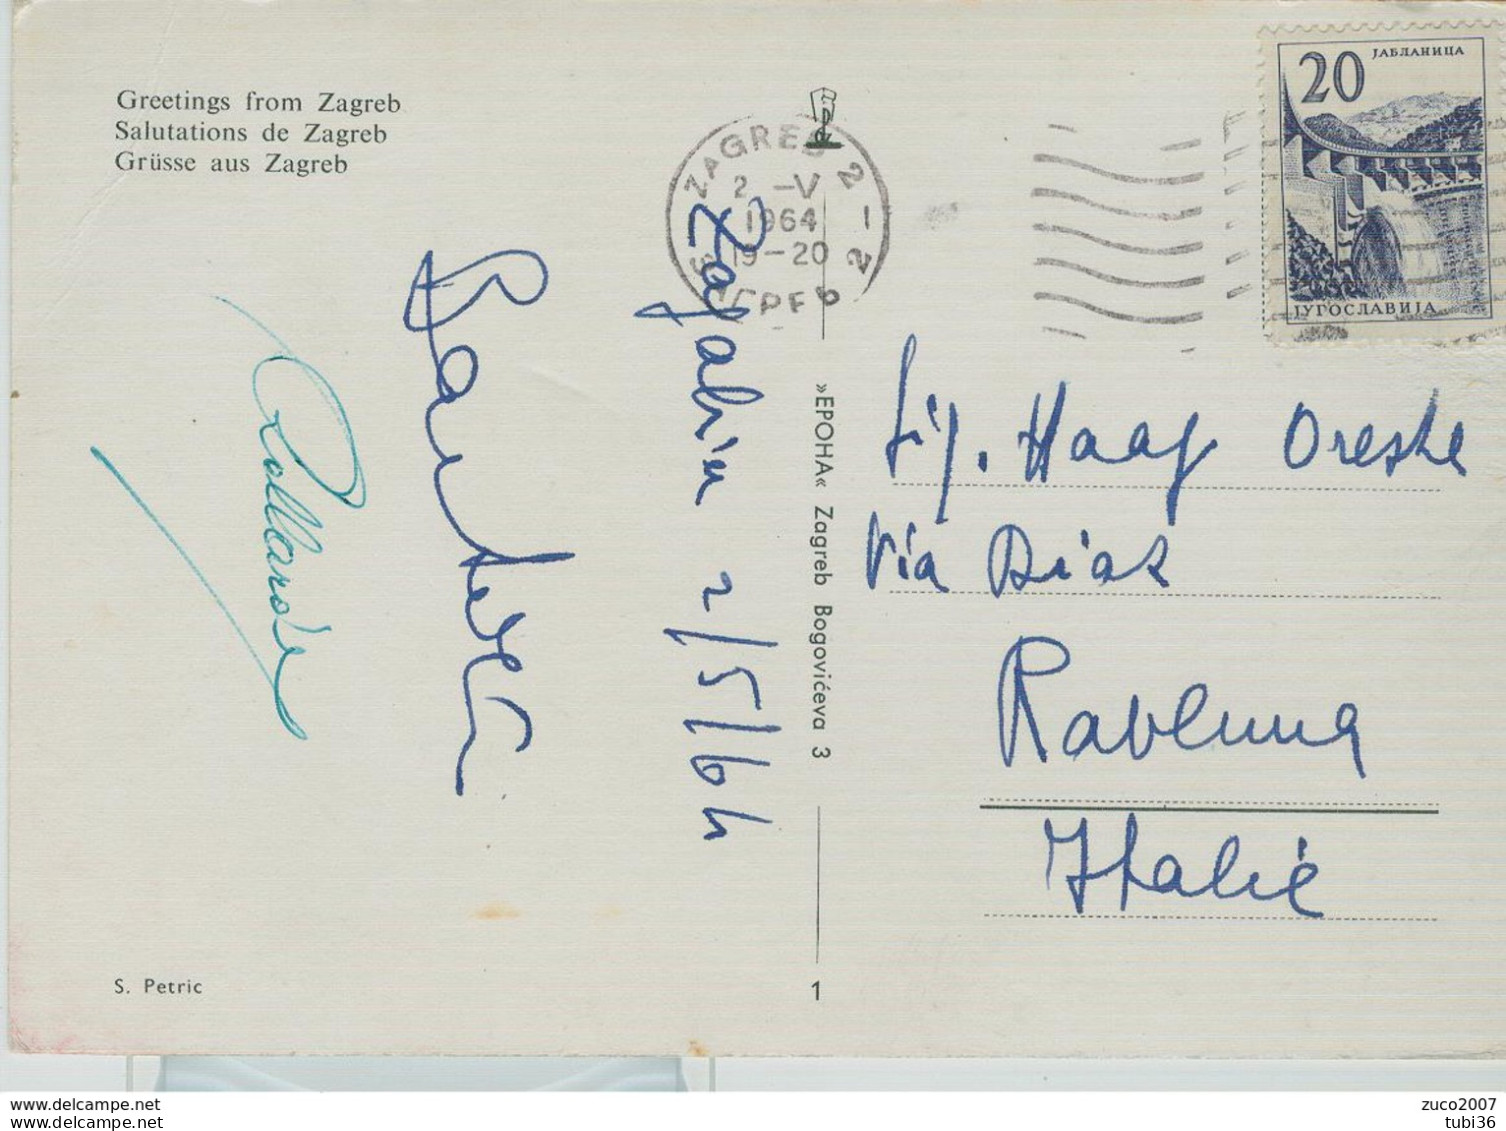 Greetings from Zagreb
Salutations de Zagreb
Grüsse aus Zagreb
ZAGREB 2
2 -V
1964
19-20
2
ЗАГРЕБ
20
ЈАБЛАНИЦА
ЈУГОСЛАВИЈА
Zagabria 2/5/64
»EPOHA« Zagreb Bogovićeva 3
Sig. Haag Oreste
Via Diaz
Ravenna
Italie
S. Petric
1
www.delcampe.net
www.delcampe.net
zuco2007
tubi36